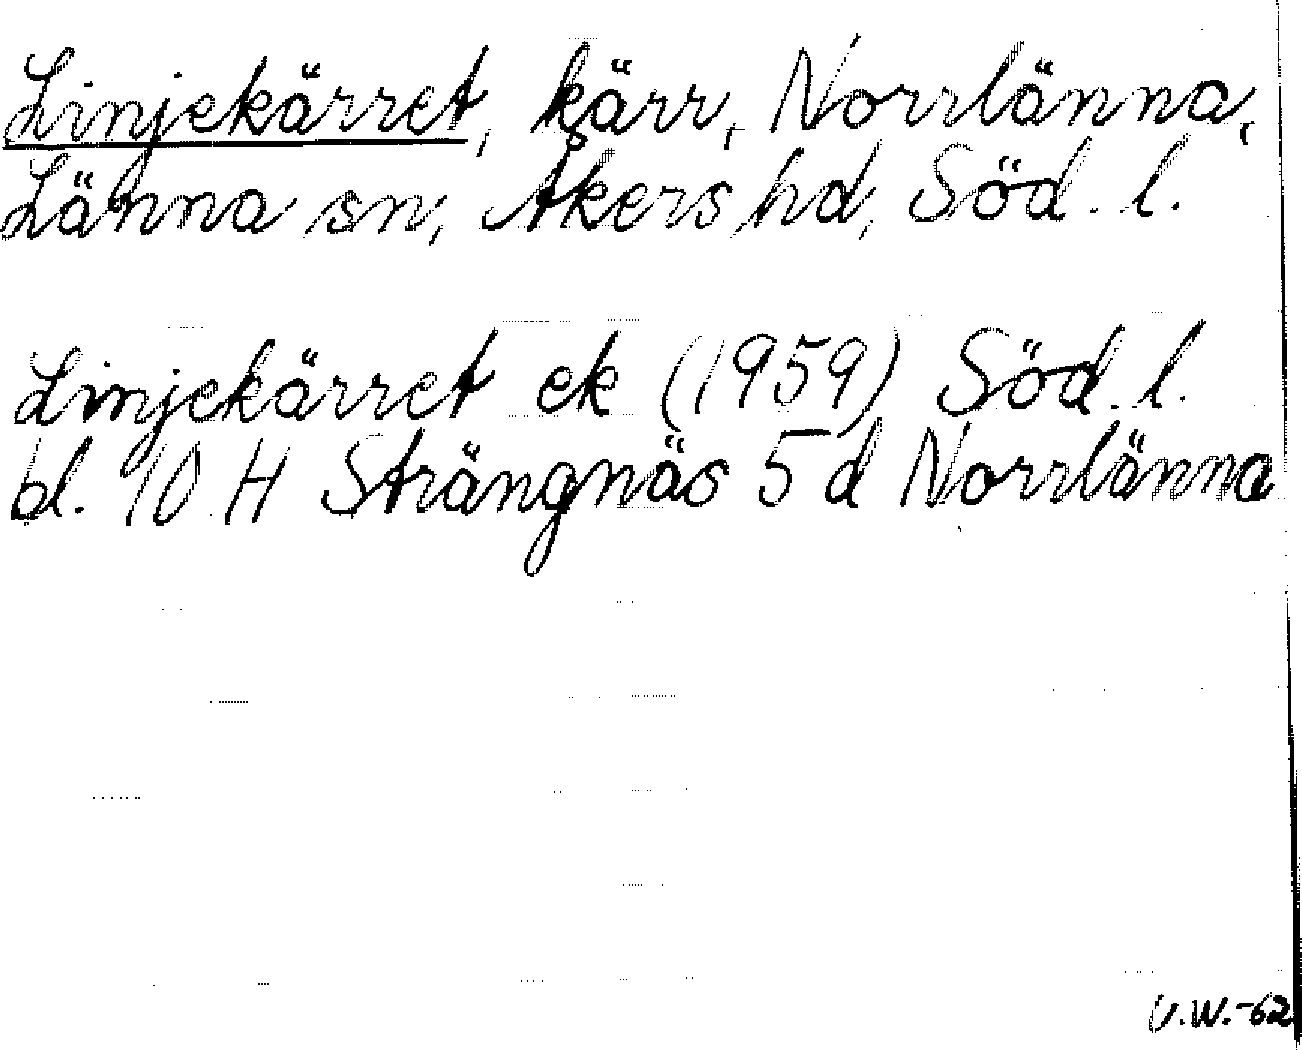 Linjekärret, kärr, Norrlänna,
Länna sn, Åkers hd, Söd. l.
Linjekärret ek (1959) Söd. l.
bl. 10 H Strängnäs 5 d Norrlänna
U.W.-62